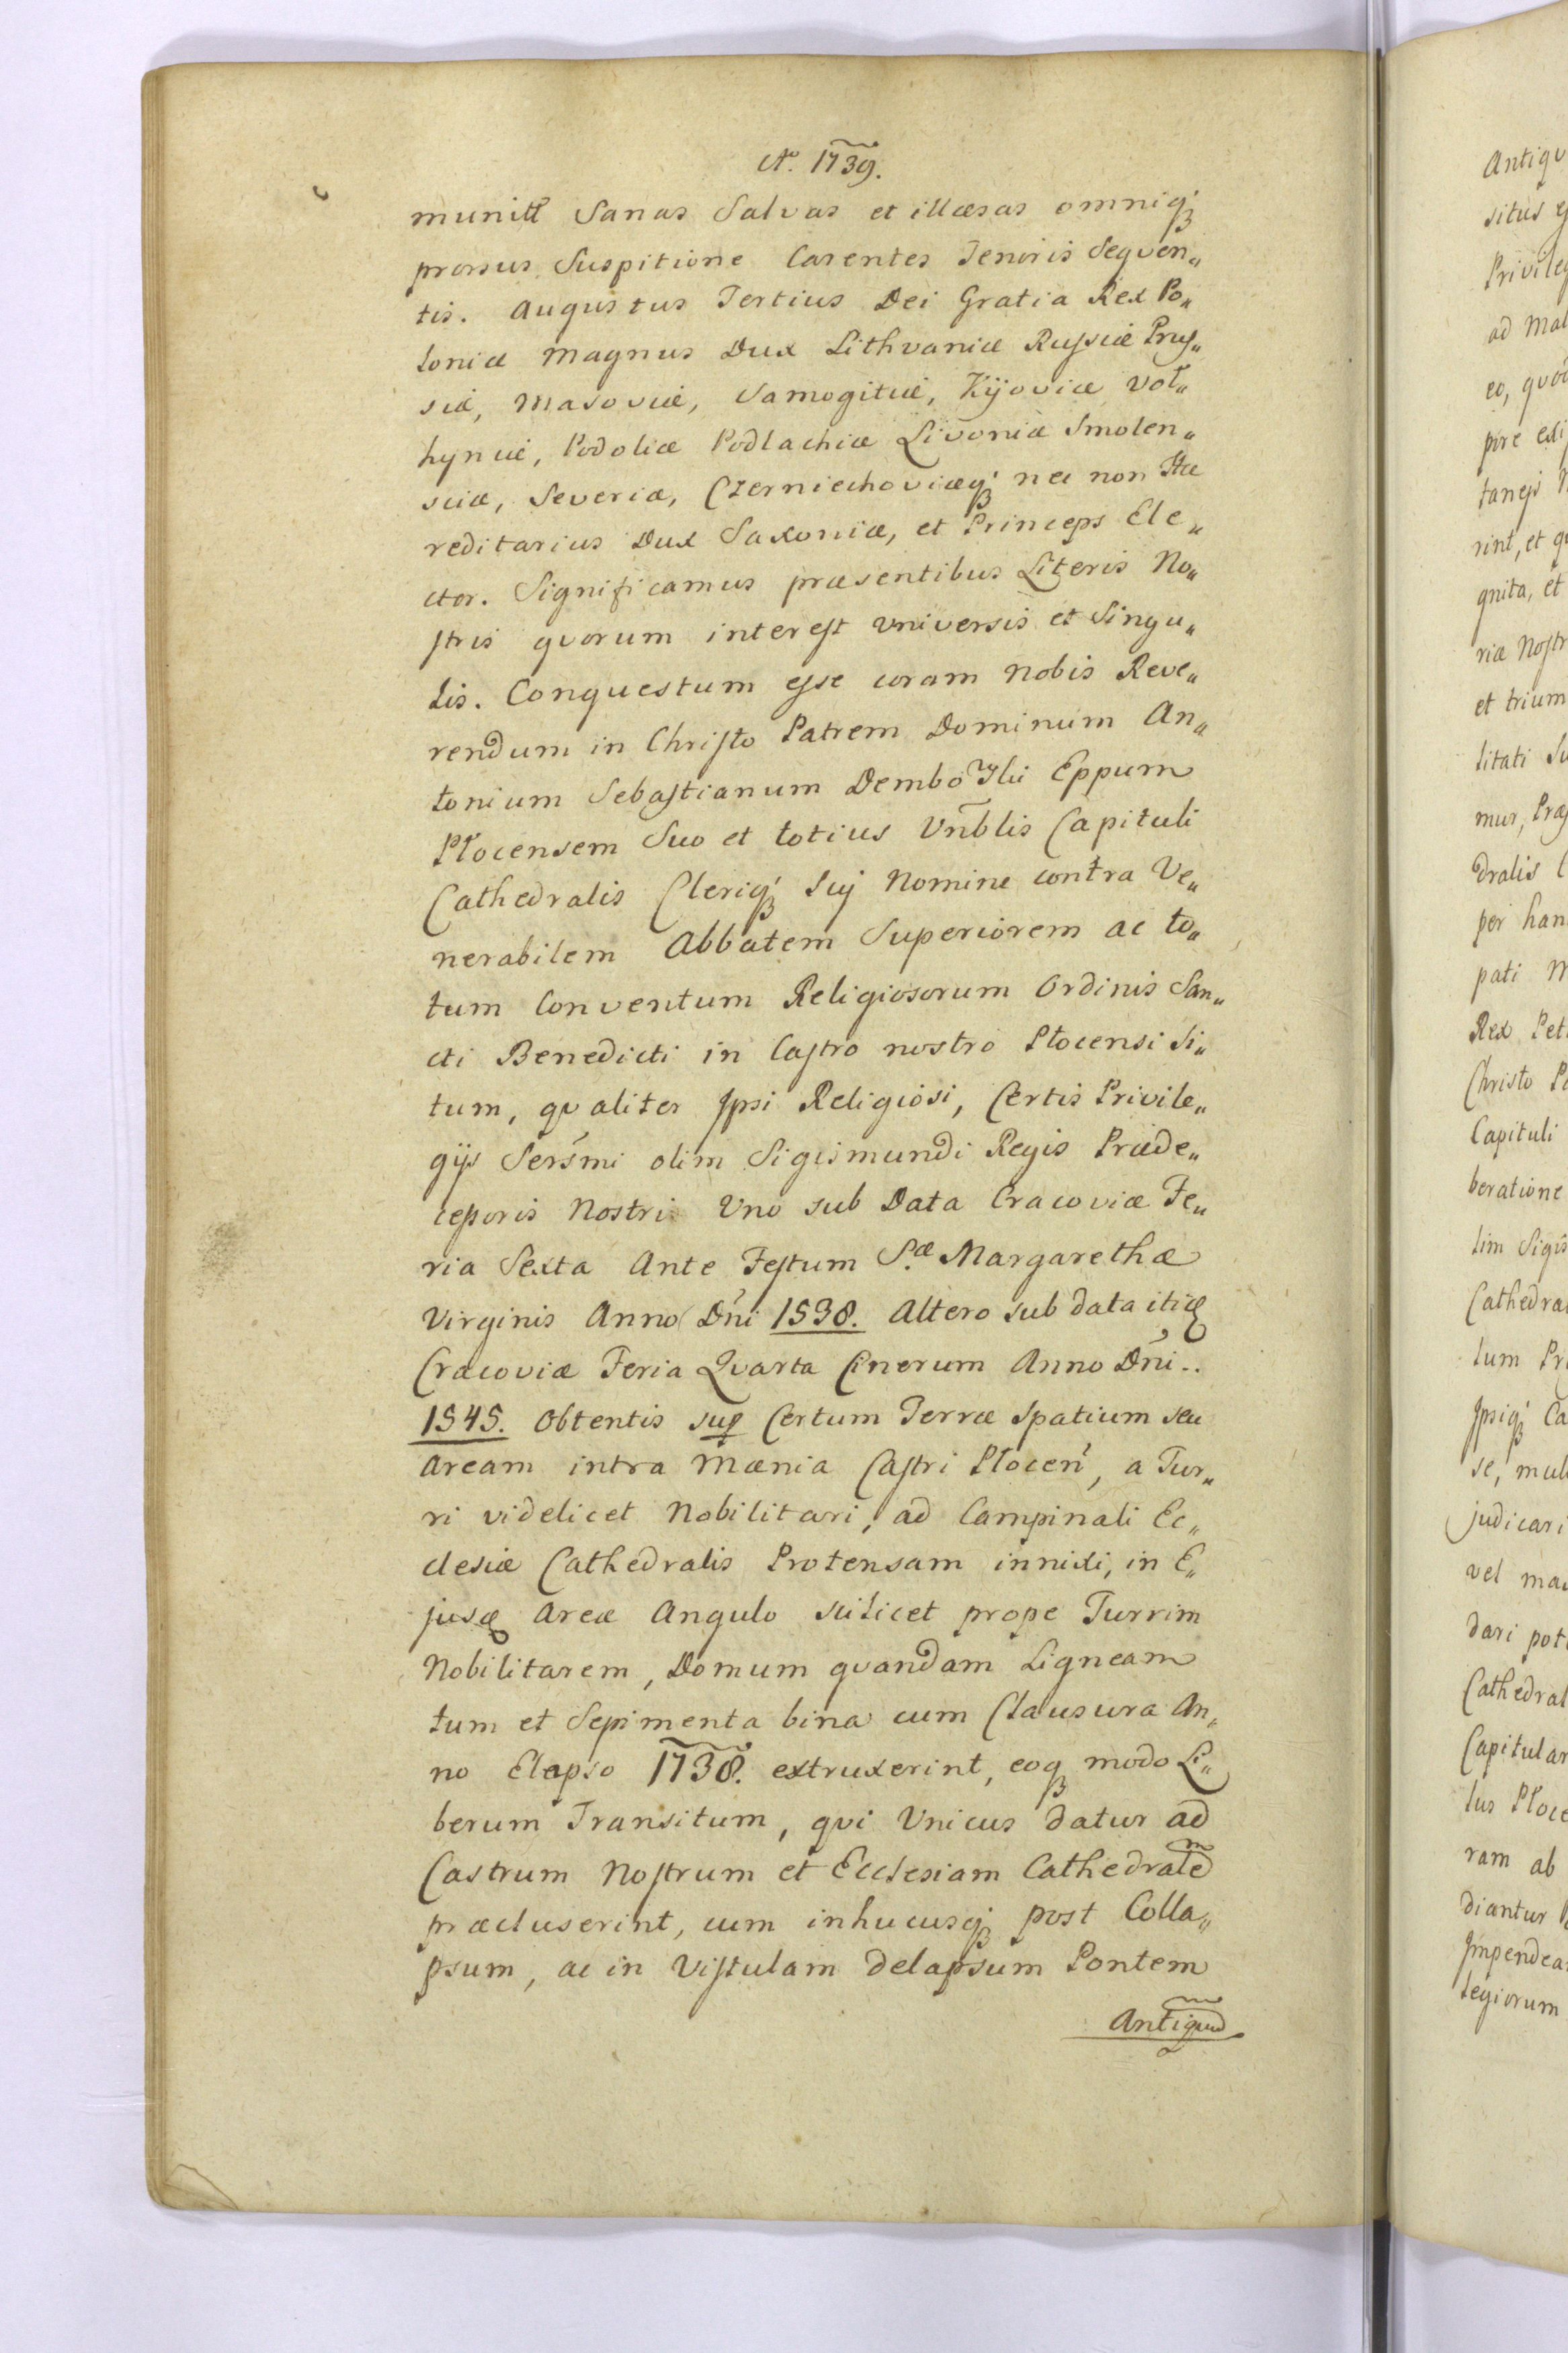 Ao. 1739.
munitt Sanas Salvas et illæsas omniq;
prorsus Suspitione Carentes Tenoris Sequen„
tis. Augustus Tertius Dei Gratia Rex Po„
loniæ Magnus Dux Lithvaniæ Russiæ Prus„
siæ, Masoviæ, Samogitiæ, Kijoviæ Vol„
hyniæ, Podoliæ Podlachiæ Livoniæ Smolen„
sciæ, Severiæ, Czerniechoviæq; nec non Hæ
reditarius Dux Saxoniæ, et Princeps Ele„
ctor. Significamus præsentibus Literis No„
stris qvorum interest Vniversis et Singu„
lis. Conquestum esse coram nobis Reve„
rendum in Christo Patrem Dominum An„
tonium Sebastianum Dembo Eppum
Płocensem Suo et totius Vnblis Capituli
Cathedralis Cleriq; Sui Nomine contra Ve„
nerabilem Abbatem Superiorem ac to„
tum Conventum Religiosorum Ordinis San„
cti Benedicti in Castro nostro Płocensi Si„
tum, qvaliter Ipsi Religiosi, Certis Privile„
gijs Sersmi olim Sigismundi Regis Præde„
ceporis Nostri Vno sub Data Cracoviæ Fe„
ria Sexta Ante Festum S.æ Margarethæ
Virginis Anno Dni 1538. Altero sub data itiq
Cracoviæ Feria Qvarta Cinerum Anno Dni..
1545. Obtentis sup Certum Terræ Spatium seu
Aream intra Mænia Castri Płocen, a Tur„
ri videlicet Nobilitari, ad Campinali Ec„
clesiæ Cathedralis Protensam innixi, in E„
jusq Areæ Angulo scilicet prope Turrim
Nobilitarem, Domum qvandam Ligneam
tum et Sepimenta bina cum Clausura An„
no Elapso 1738. extruxerint, eoq; modo Li„
berum Transitum, qvi Vnicus datur ad
Castrum Nostrum et Ecclesiam Cathedrale
præcluserint, cum inhucusq; post Colla„
psum, ac in Vistulam delapsum Pontem
Antiquu
Antiqv
situs
Privileg
ad Mal
eo, qvo
pore
tanq
rint, et q
gnita, et
riæ Nostr
et trium
litati Su
mur, Præ
dralis C
per han
pati M
Rex Pet
Christo Pa
Capituli
beratione
lim Sigis
Cathedra
lum Pr
Ipsiq; Ca
se, mul
judicari
vel ma
dari pot
Cathedral
Capitular
lus Płoce
ram ab
diantur
Impendea
legiorum